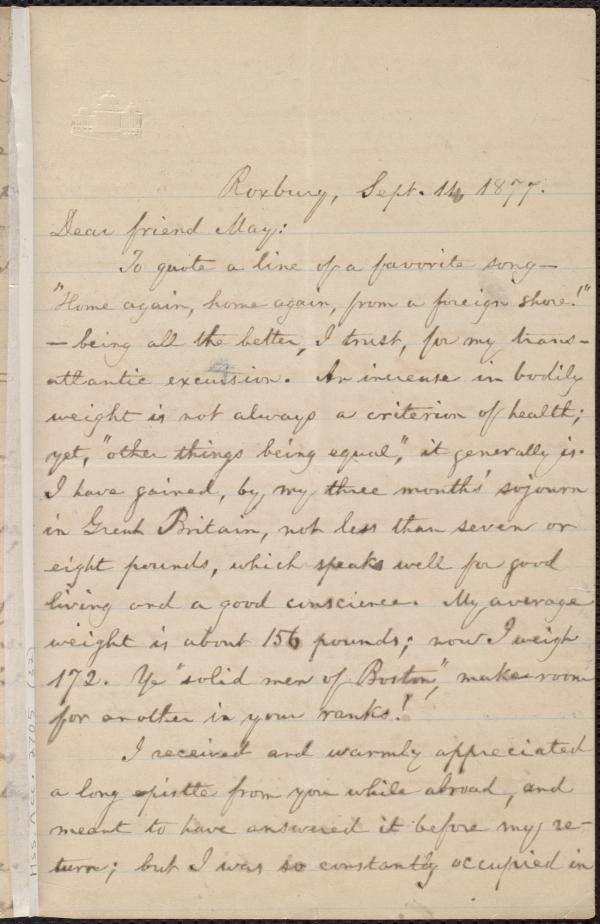 Roxbury, Sept. 14, 1877.
Dear friend May:
To quote a line of a favorite song—
"Home again, home again, from a foreign shore!"
— being all the better, I trust, for my trans-
atlantic excursion. An increase in bodily
weight is not always a criterion of health;
yet, "other things being equal," it generally is.
I have gained, by my three months' sojourn
in Great Britain, not less than seven or
eight pounds, which speaks well for good
living and a good conscience. My average
weight is about 156 pounds; now I weigh
172. Ye "solid men of Boston," make room
for another in your ranks!
I received and warmly appreciated
a long epistle from you while abroad, and
meant to have answered it before my re-
turn; but I was so constantly occupied in
Mss. Acc. 2705 (22)